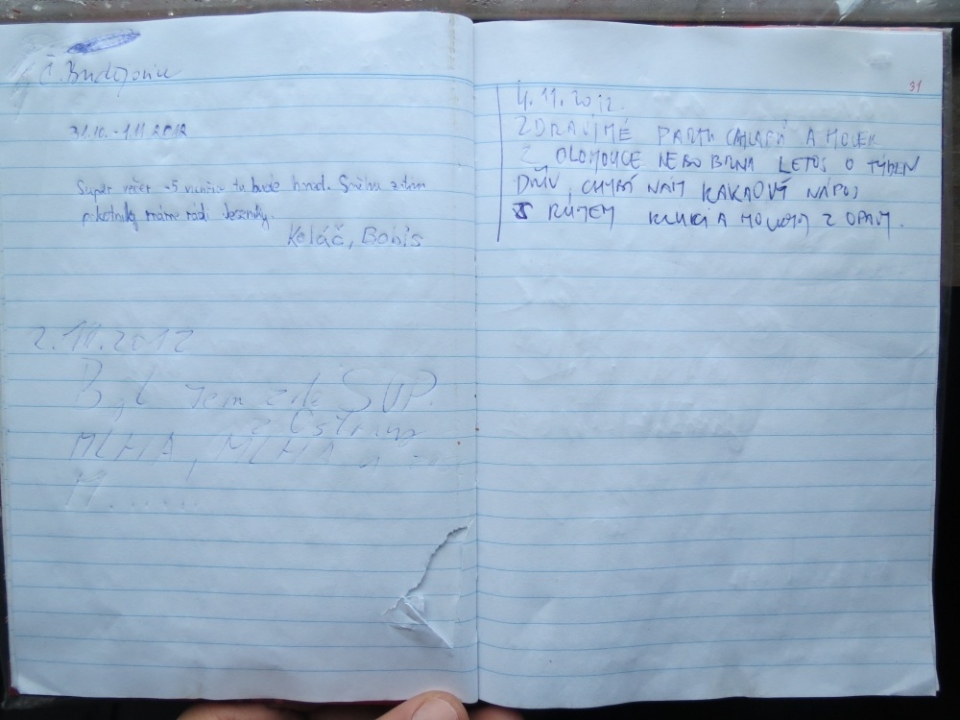 Č. Budějovice
31.10.-1.11 2012
Super večer -5 tu bude hned. Sněhu
máme rádi Jeseníky.
Koláč, Bobis
2.11.2012
Byl jsem zde SVP.
z Ostravy
MLHA, MLHA a
M......
31
4.11.2012.
ZDRAVÍME PARTU CHLAPŮ A HOLEK
Z OLOMOUCE NEBO BRNA LETOS O TÝDEN
DŘÍV, CHYBÍ NÁM KAKAOVÝ NÁPOJ
S RUMEM KLUCI A HOLKY Z OPAVY.